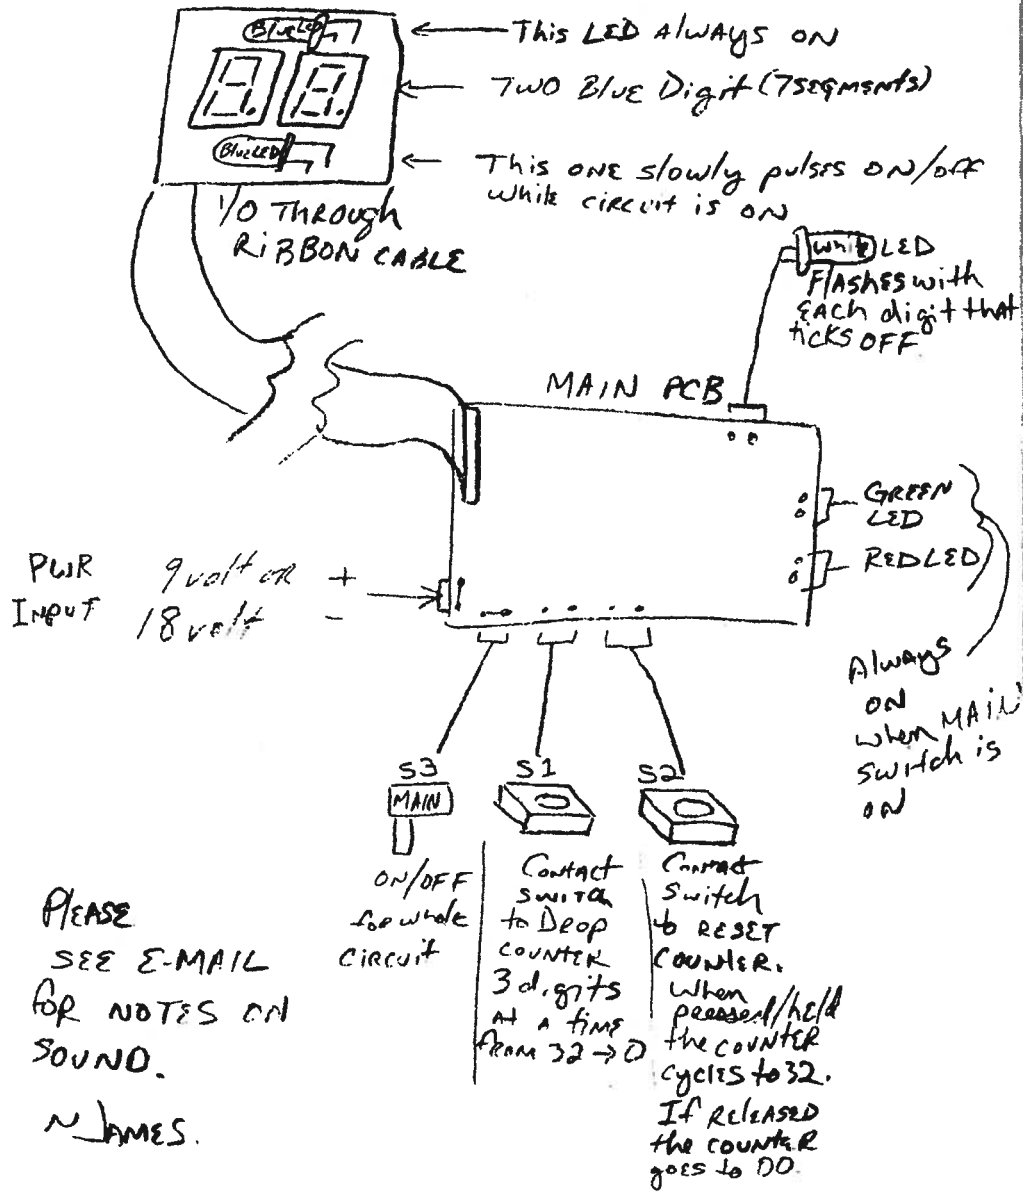 Blue LED
This LED Always ON
TWO Blue Digit (7SEGMENTS)
Blue LED
This ONE slowly pulses ON/OFF
while circuit is ON
I/O THROUGH
RIBBON CABLE
White LED
FlAsHES with
EACH digit that
ticks OFF
MAIN PCB
GREEN
LED
RED LED
PWR
INPUT
9 volt OR
18 volt
+
-
Always
ON
when MAIN
Switch is
ON
S3
MAIN
ON/OFF
for whole
CIRCUIT
S1
Contact
SWITCH
to DROP
COUNTER
3 digits
At a time
FROM 32 → 0
S2
Contact
Switch
to RESET
COUNTER.
When
pressed/held
the COUNTER
cycles to 32.
If RELEASED
the COUNTER
goes to 00.
PLEASE
SEE E-MAIL
FOR NOTES ON
SOUND.
N JAMES.